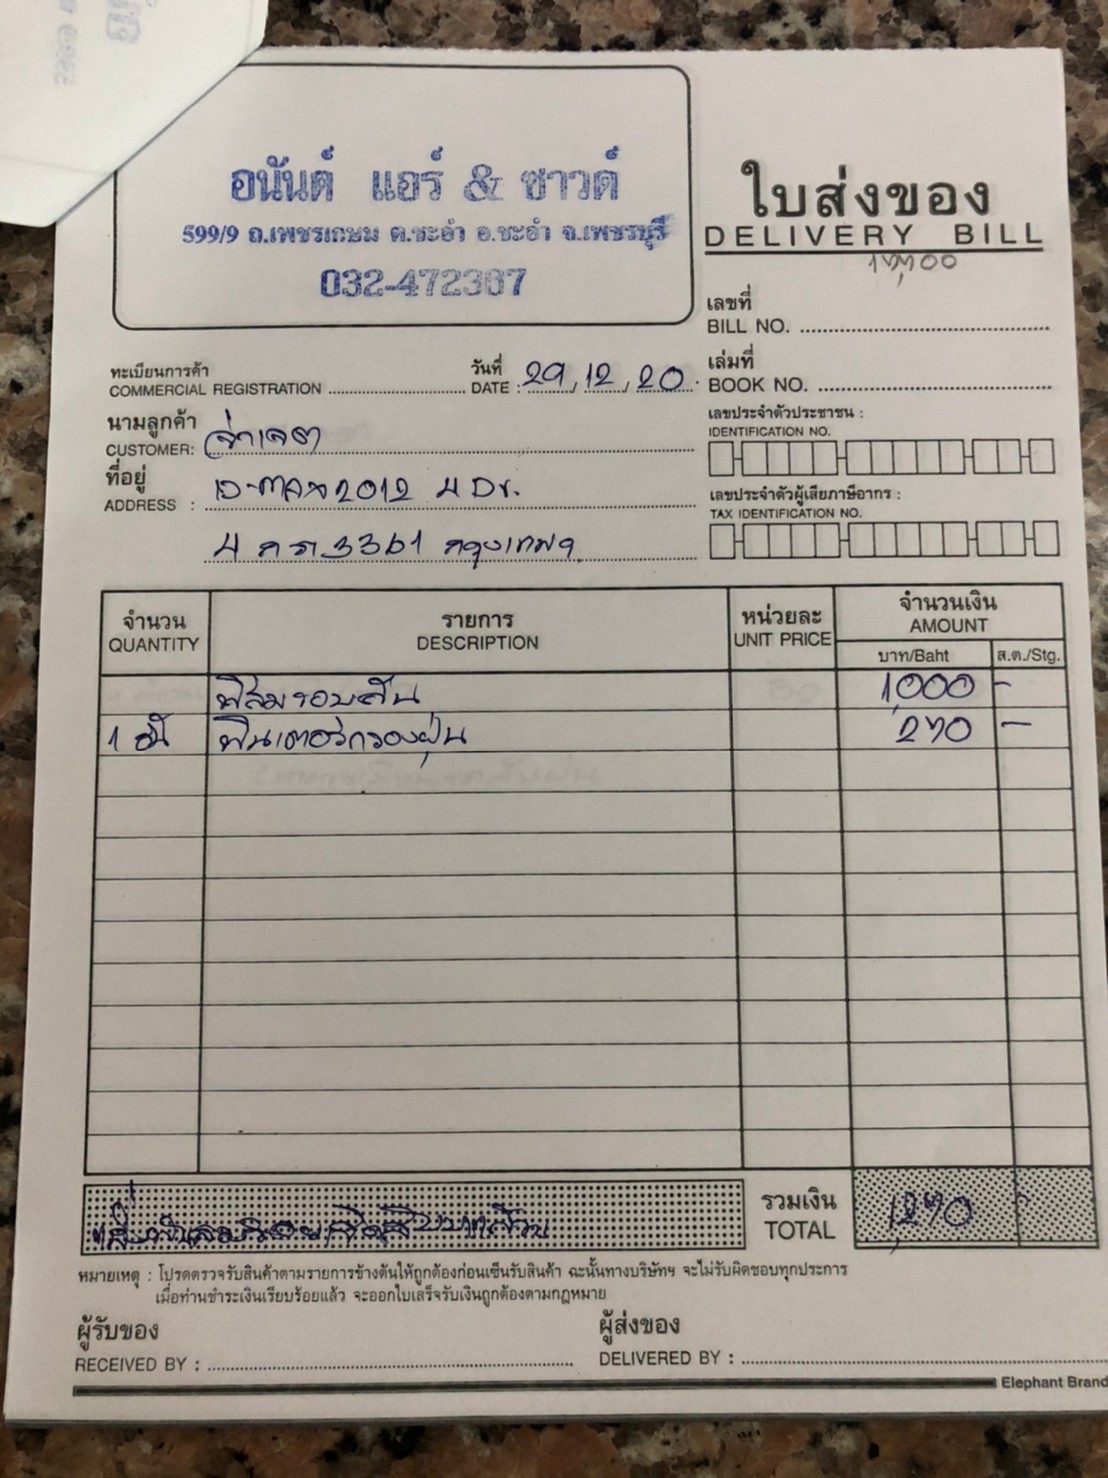 อนันต์ แอร์ & ซาวด์
599/9 ถ.เพชรเกษม ต.ชะอำ อ.ชะอำ จ.เพชรบุรี
032-472367
ใบส่งของ
DELIVERY BILL
เลขที่
BILL NO.
ทะเบียนการค้า
COMMERCIAL REGISTRATION
วันที่
DATE : 29, 12, 20
เล่มที่
BOOK NO.
นามลูกค้า
CUSTOMER:
เลขประจำตัวประชาชน :
IDENTIFICATION NO.
ที่อยู่
ADDRESS : 2012
เลขประจำตัวผู้เสียภาษีอากร :
TAX IDENTIFICATION NO.
3361 กรุงเทพฯ
จำนวน
QUANTITY
รายการ
DESCRIPTION
หน่วยละ
UNIT PRICE
จำนวนเงิน
AMOUNT
บาท/Baht
ส.ต./Stg.
ฟิล์มรอบคัน 1,000 -
1 อัน ฟิลเตอร์กรองฝุ่น 270 -
รวมเงิน
TOTAL
1,270 -
หมายเหตุ : โปรดตรวจรับสินค้าตามรายการข้างต้นให้ถูกต้องก่อนเซ็นรับสินค้า ฉะนั้นทางบริษัทฯ จะไม่รับผิดชอบทุกประการ
เมื่อท่านชำระเงินเรียบร้อยแล้ว จะออกใบเสร็จรับเงินถูกต้องตามกฎหมาย
ผู้รับของ
RECEIVED BY :
ผู้ส่งของ
DELIVERED BY :
Elephant Brand